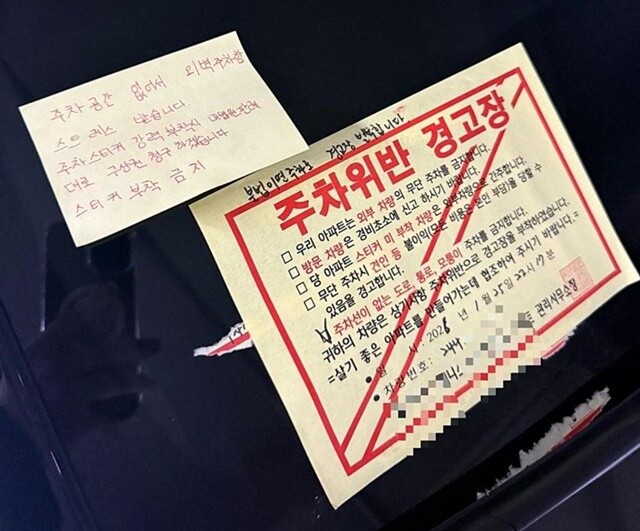 주차공간 없어서 외벽주차함
스트레스 받습니다
주차스티커 강력 부착시 대법원 판례
대로 구상권 청구 하겠습니다
스티커 부착 금지
불법이면주차 경고장 발부합니다.
주차위반 경고장
□ 우리 아파트는 외부 차량의 무단 주차를 금지합니다.
□ 방문 차량은 경비초소에 신고 하시기 바랍니다.
□ 당 아파트 스티커 미 부착 차량은 외부차량으로 간주합니다.
□ 무단 주차시 견인 등 불이익(모든 비용은 본인 부담)을 당할 수
있음을 경고합니다.
주차선이 없는 도로, 통로, 모퉁이 주차를 금지합니다.
귀하의 차량은 상기사항 주차위반으로 경고장을 부착하였습니다.
=살기 좋은 아파트를 만들어가는데 협조하여 주시기 바랍니다.=
• 일 시: 2026년 1월 25일 22시 17분
• 차량번호:
관리사무소장